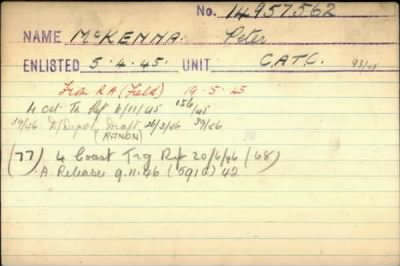 No. 14957562
NAME McKENNA. Peter
ENLISTED 5.4.45. UNIT C.A.T.C. 93/45
From R A (Field) 19.5.45
4 Cst. Tn Rgt 6/11/45 156/45
39/46 Draft 26/3/46 39/46
(77) 4 Coast Trg Rgt 20/6/46 (68)
A Release 9.11.46 (5910) 42